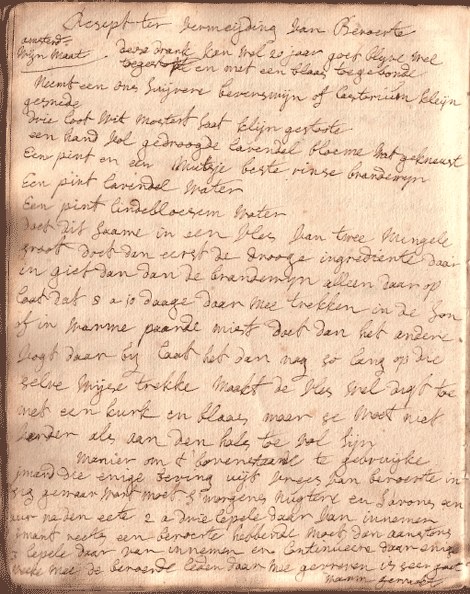 Resept ter vermeijding van Beroerte
amsterd.
wijn maat
deese drank kan wel 20 jaar goet blijve wel
toegestopt en met een blaas toegebonde
Neemt een ons suijvere beverswijn of Castorium klijn
gesnede
drie loot wit mostert saat klijn gestoote
een hand vol gedroogde lavendel bloeme wat gekneust
Een pint en een mutsje beste rinse brandewijn
Een pint lavendel water
Een pint lindebloesem water
doet dit saame in een vles van twee mingele
groot doet dan eerst de drooge ingrediente daar
in giet dan dan de brandewijn alleen daar op
laat dat 8 a 10 daage daar mee trekken in de son
of in warme paarde mist doet dan het andere
vogt daar bij laat het dan nog so lang op die
selve wijse trekke maakt de vles wel digt toe
met een kurk en blaas maar se moet niet
verder als aan den hals te vol sijn
Manier om t bovenstaande te gebruijke
jmand die enige beving uijt vrees van beroerte in
sig gewaar wort moet s morgens nugtere en savons een
uur na den eete 2 a drie lepels daar van inneemen
jmant reets een beroerte hebbende moet dan aanstons
3 lepels daar van inneemen en Continueere daar enige
weeke mee de beroerde leden daar mee gevreven is seer goet
warm gemaakt